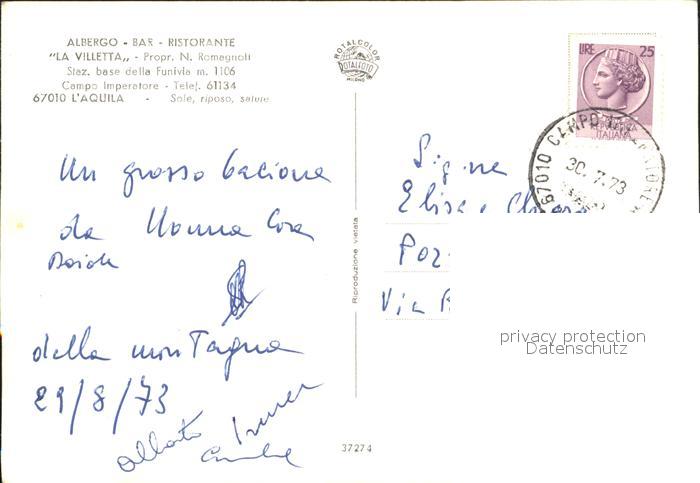 ALBERGO - BAR - RISTORANTE
"LA VILLETTA" - Propr. N. Romagnoli
Staz. base della Funivia m. 1106
Campo Imperatore - Telef. 61134
67010 L'AQUILA - Sole, riposo, salute
ROTALCOLOR
ROTALFOTO
MILANO
LIRE 25
ITALIANA
67010 CAMPO IMPERATORE
30.7.73
Un grosso bacione
da Nonna Cora
della montagna
29/8/73
Alberto
Riproduzione vietata
37274
Sig.ne
Elisa e Chiara
Via
privacy protection
Datenschutz